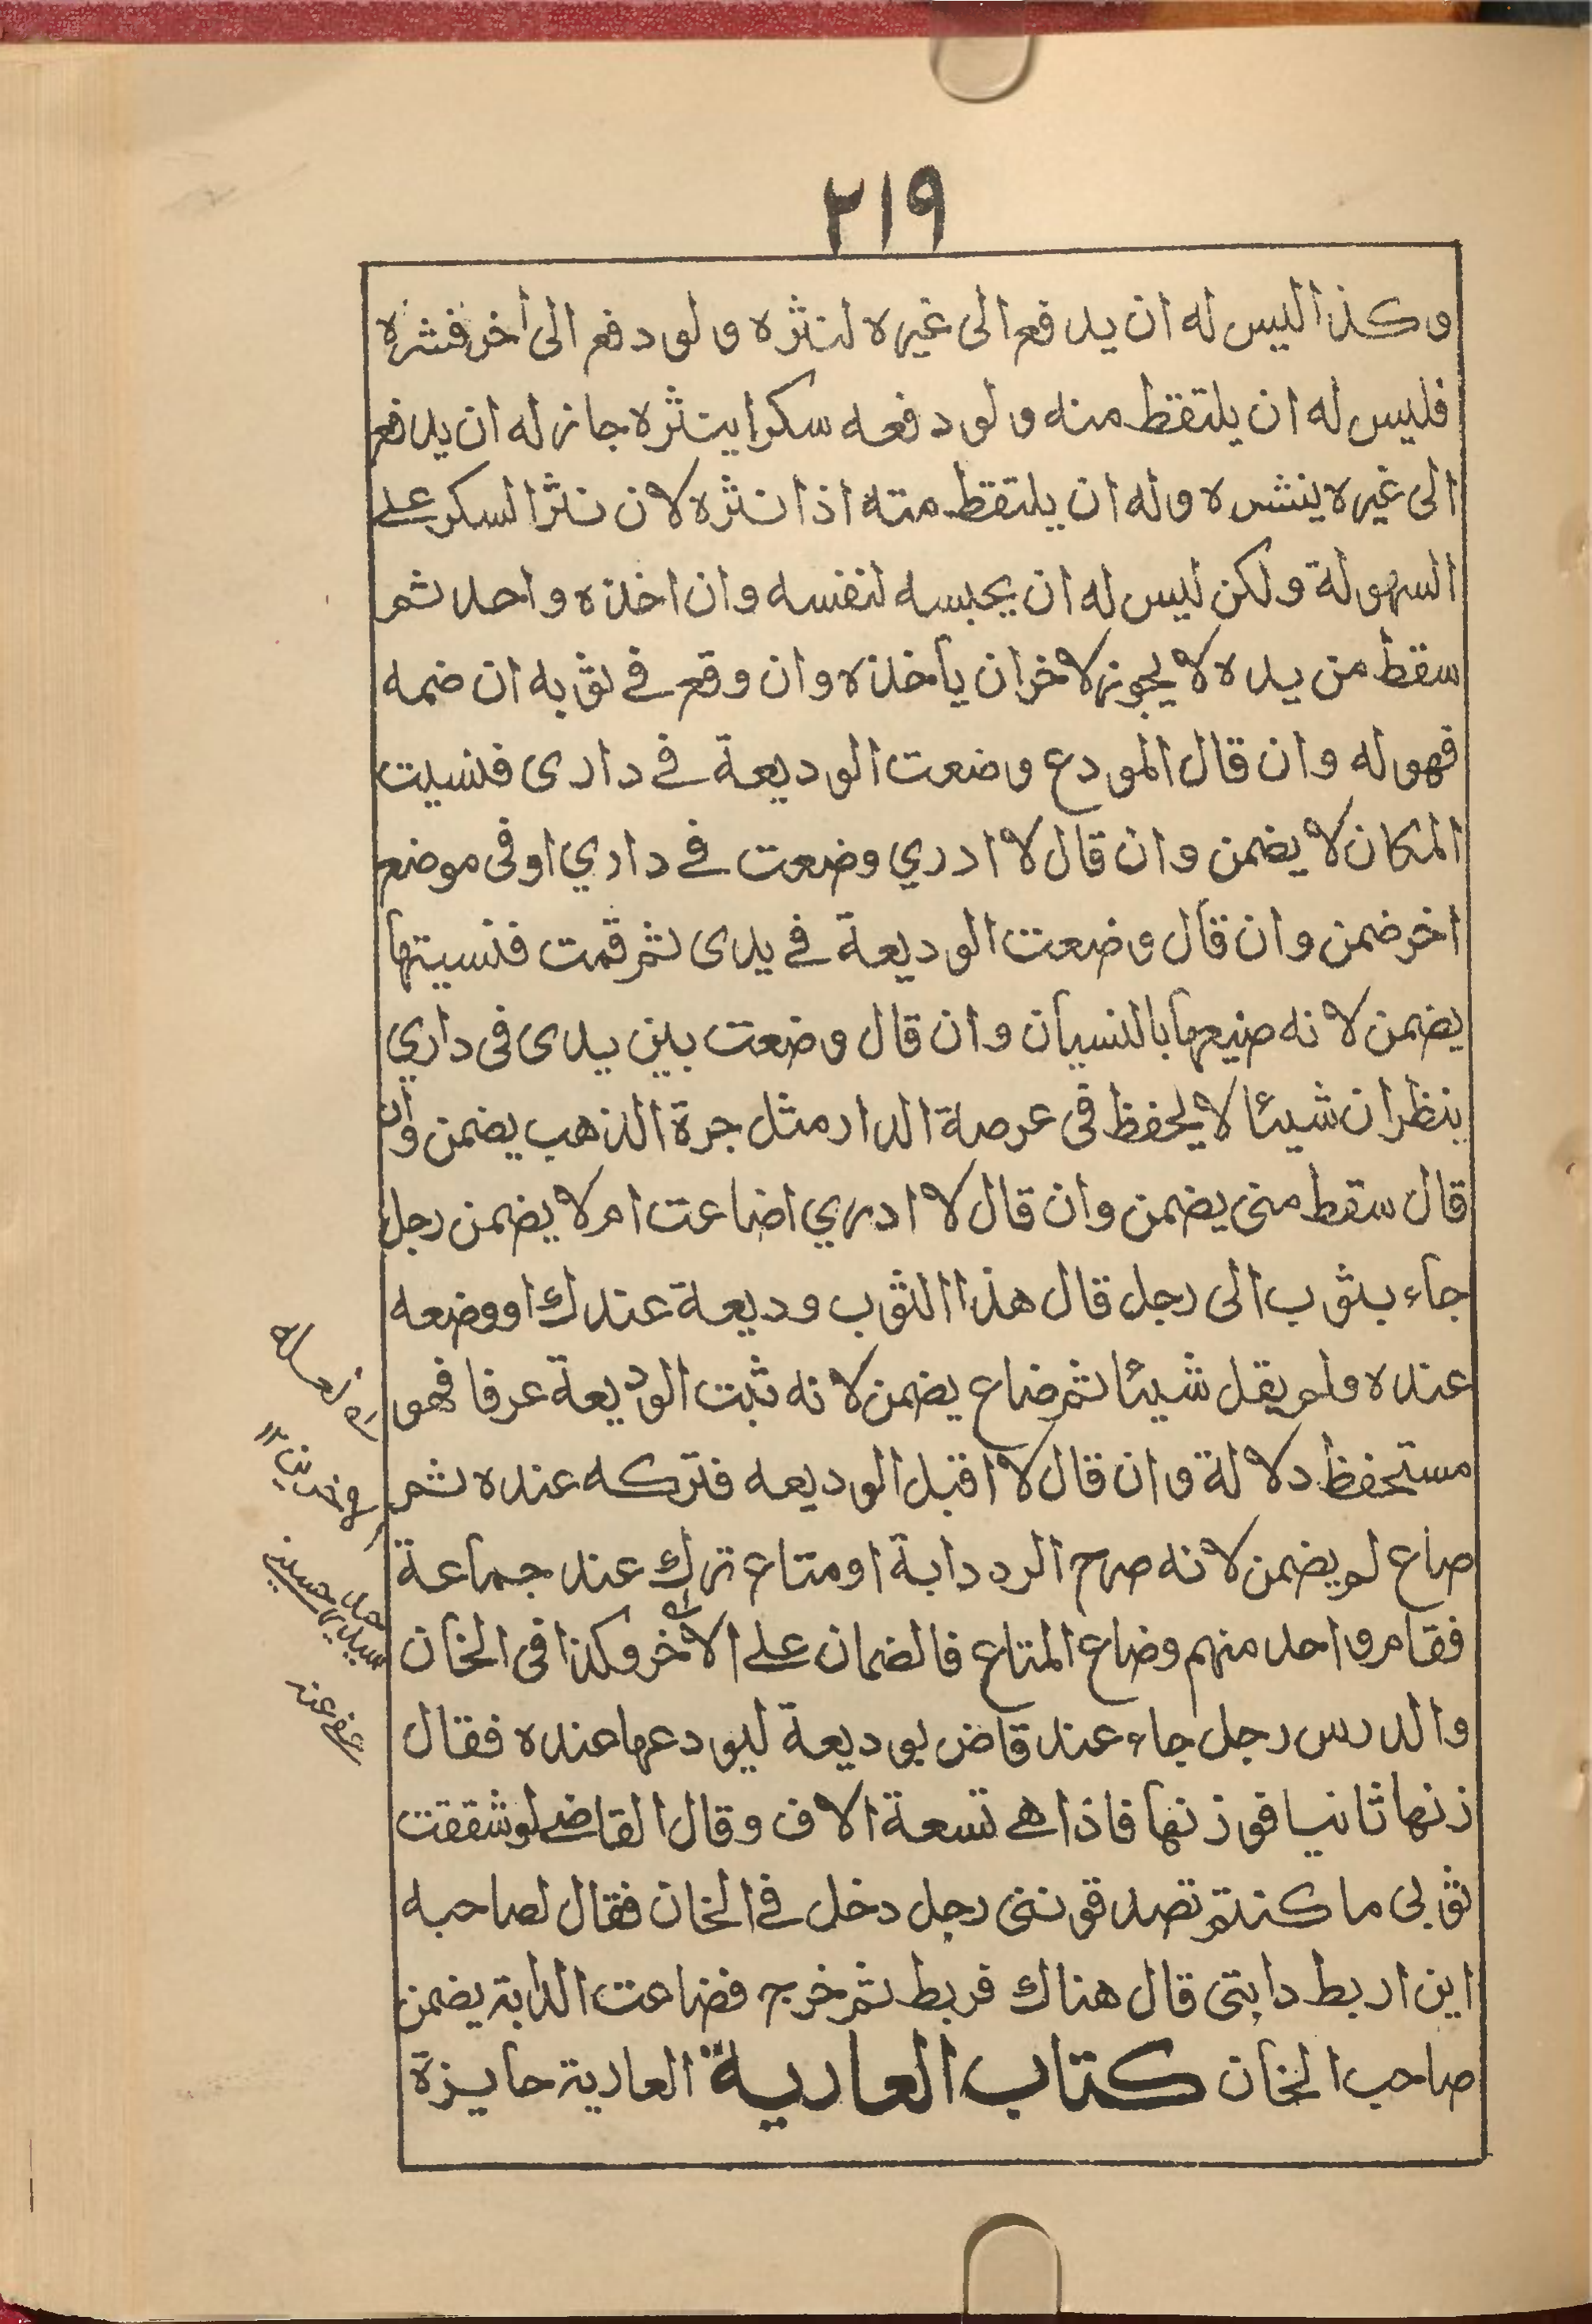 ٢١٩
وكذا ليس له ان يدفع الى غيره لنثره ولو دفع الى أخر فنثره
فليس له ان يلتقط منه ولو دفعه سكرا ينثره جاز له ان يدفع
الى غيره ينشره وله ان يلتقط مته اذا نثره لان نثر السكر على
السهولة ولكن ليس له ان يحبسه لنفسه وان اخذه واحد ثم
سقط من يده لا يجوز لاخر ان يأخذه وان وقع في ثوبه ان ضمه
فهو له وان قال المودع وضعت الوديعة في داري فنسيت
المكان لا يضمن وان قال لا ادري وضعت في داري او في موضع
اخر ضمن وان قال وضعت الوديعة في يدى ثم قمت فنسيتها
يضمن لانه ضيعها بالنسيان وان قال وضعت بين يدى فى داري
ينظر ان شيئا لا يحفظ فى عرصة الدار مثل جرة الذهب يضمن وان
قال سقط منى يضمن وان قال لا ادري اضاعت ام لا يضمن رجل
جاء بثوب الى رجل قال هذا الثوب وديعة عندك او وضعه
عنده ولم يقل شيئا ثم ضاع يضمن لانه ثبت الوديعة عرفا فهو
مستحفظ دلالة وان قال لا اقبل الوديعه فتركه عنده ثم
ضاع لم يضمن لانه صرح الرد دابة او متاع ترك عند جماعة
فقام واحد منهم وضاع المتاع فالضمان على الاخر وكذا فى الخان
والدرس رجل جاء عند قاض بوديعة ليودعها عنده فقال
زنها ثانيا فوزنها فاذا هي تسعة الاف وقال القاضي لو شققت
ثوبى ما كنتم تصدقوننى رجل دخل في الخان فقال لصاحبه
اين اربط دابتى قال هناك فربط ثم خرج فضاعت الدابة يضمن
صاحب الخان كتاب العارية العارية جايزة
سيدي حسيني
عفى عنه